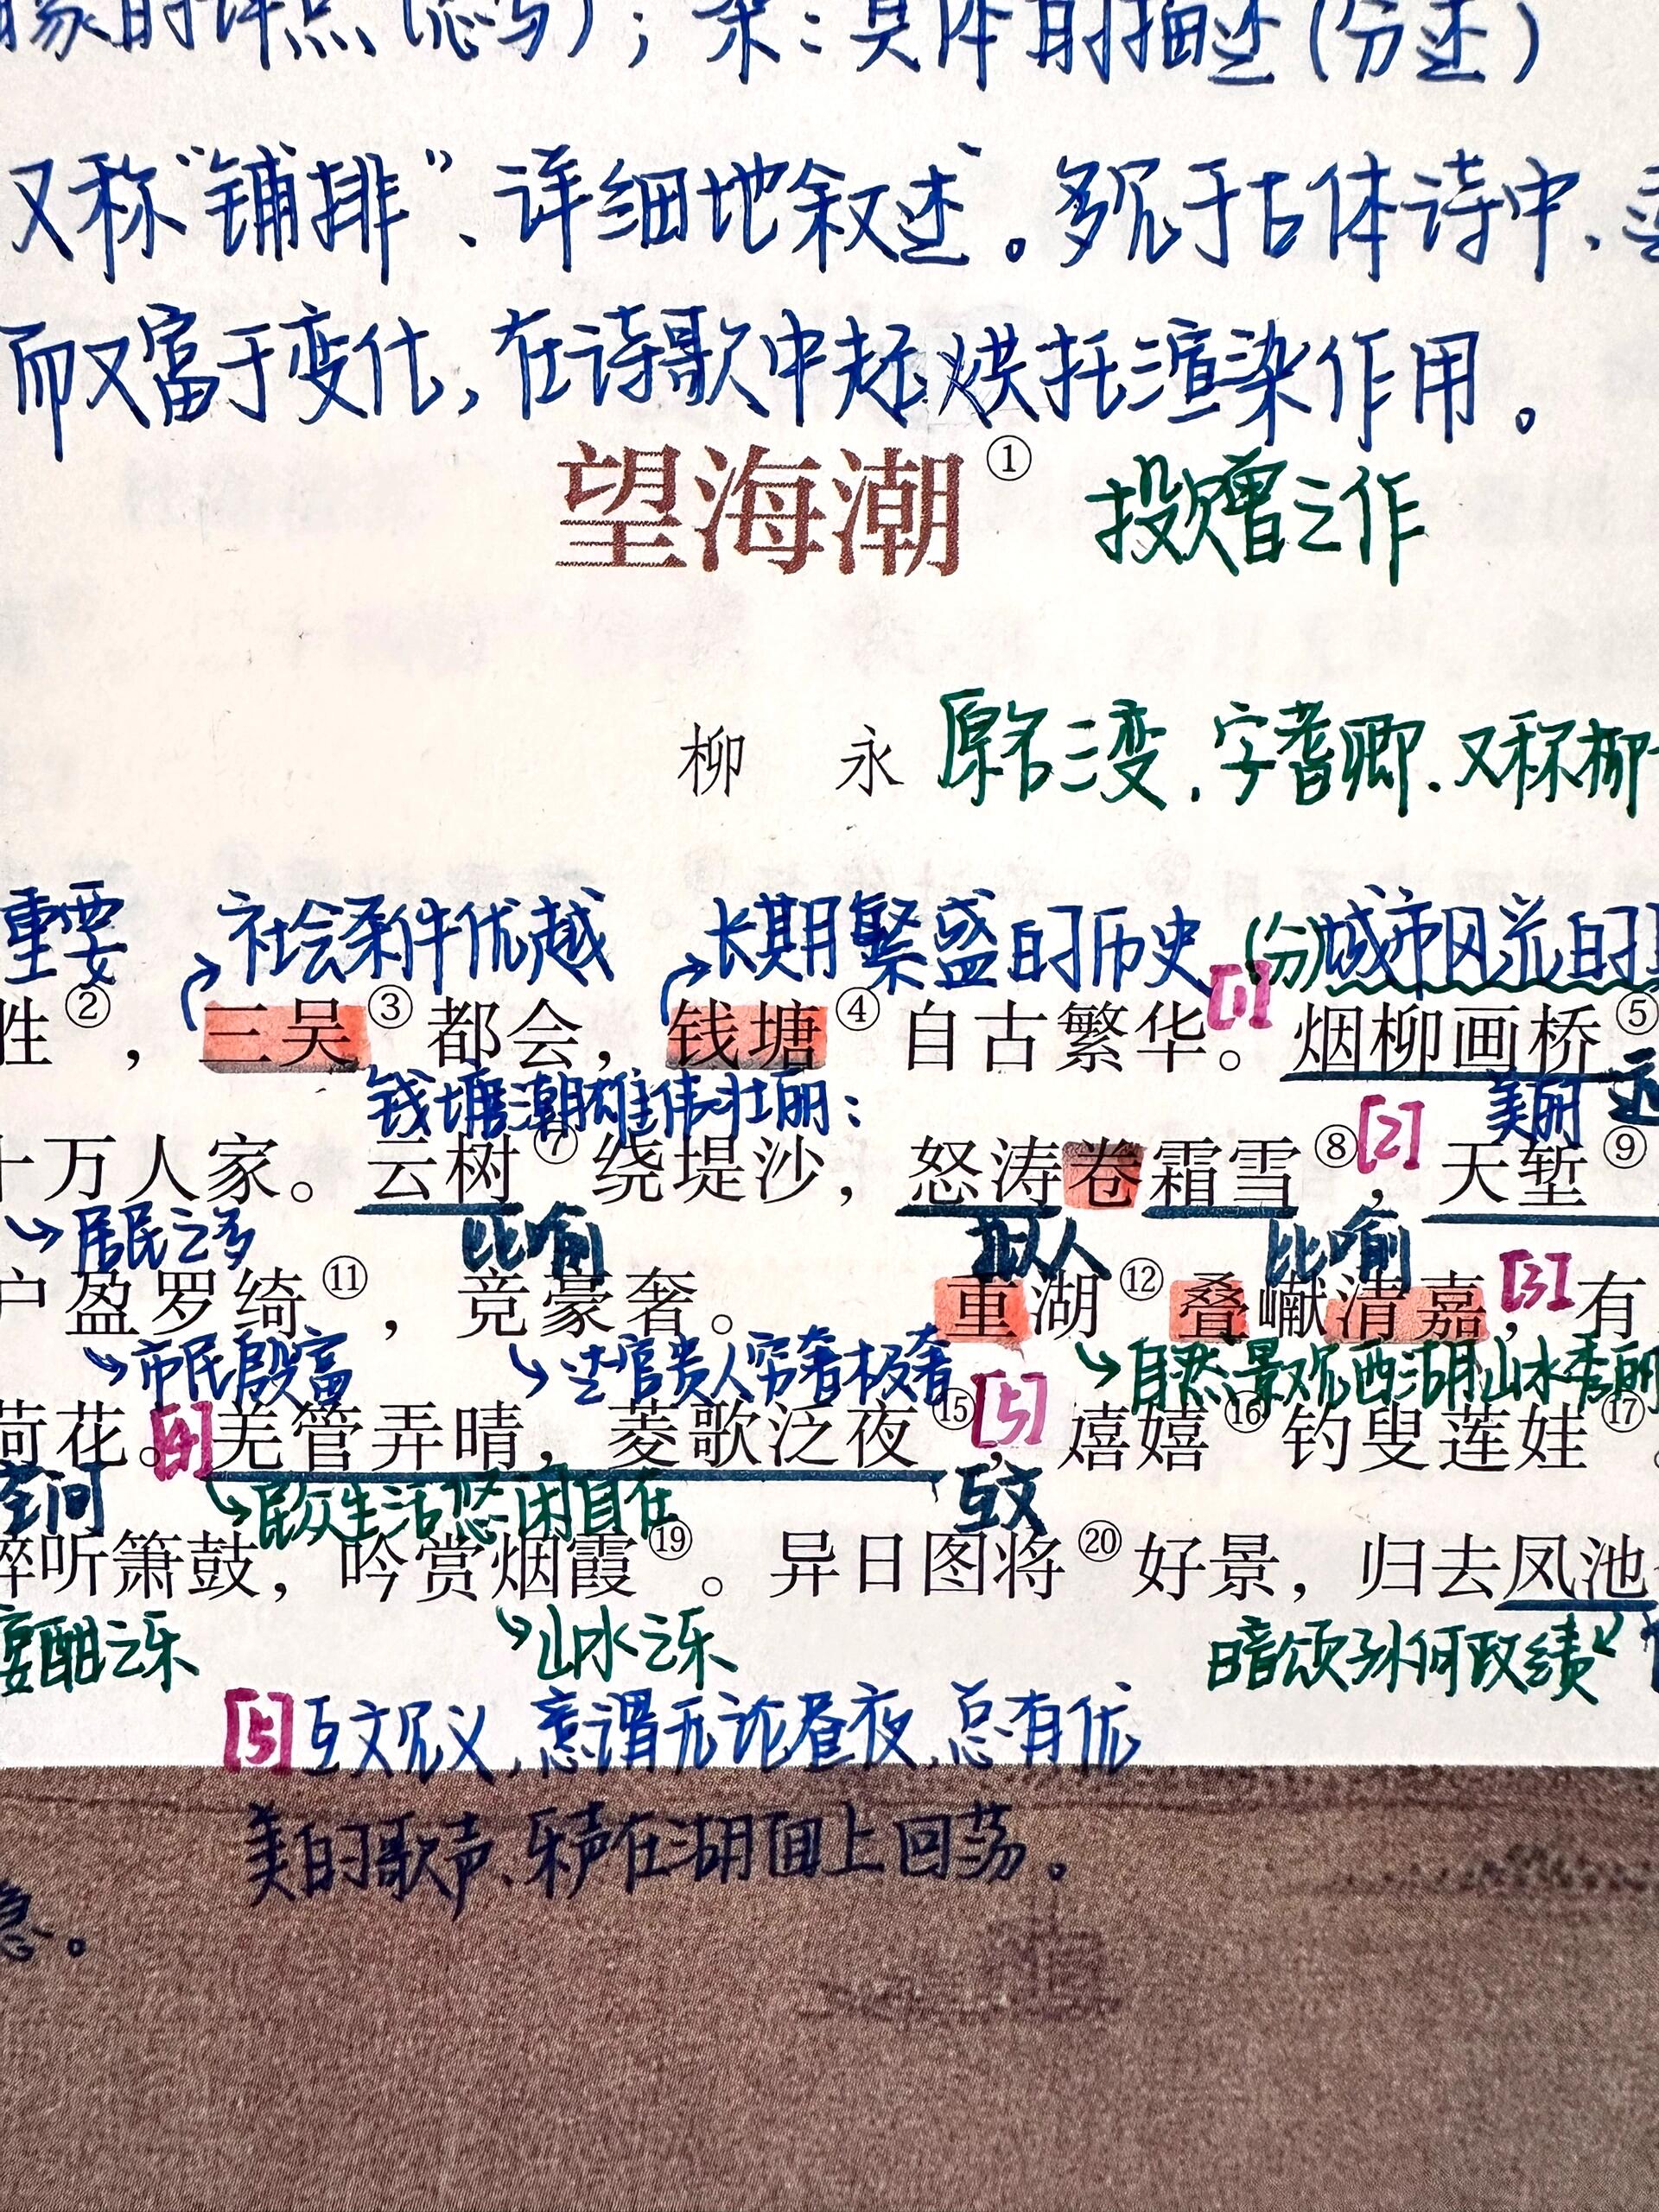 的详点（总写）；染：具体的描述（分述）
又称“铺排”、详细地叙述。多见于古体诗中，
而又富于变化，在诗歌中起烘托渲染作用。
望海潮① 投赠之作
柳 永 原名三变，字耆卿．又称柳
重要 社会条件优越 长期繁盛的历史 (分)城市风光的
胜②，三吴③都会，钱塘④自古繁华。[1]烟柳画桥⑤
钱塘潮雄伟壮丽： 美丽
十万人家。云树⑦绕堤沙，怒涛卷霜雪⑧[2]，天堑⑨
居民之多 比喻 拟人 比喻
户盈罗绮⑪，竞豪奢。 重湖⑫叠巘清嘉[3]，有
市民殷富 达官贵人穷奢极奢 自然景观西湖山水秀丽
荷花。[4]羌管弄晴，菱歌泛夜⑮[5]，嬉嬉⑯钓叟莲娃⑰。
空间 民众生活悠闲自在 互文
醉听箫鼓，吟赏烟霞⑲。异日图将⑳好景，归去凤池
宴酣之乐 山水之乐 暗颂孙何政绩
[5]互文见义，意谓无论昼夜，总有优
美的歌声、乐声在湖面上回荡。
急。